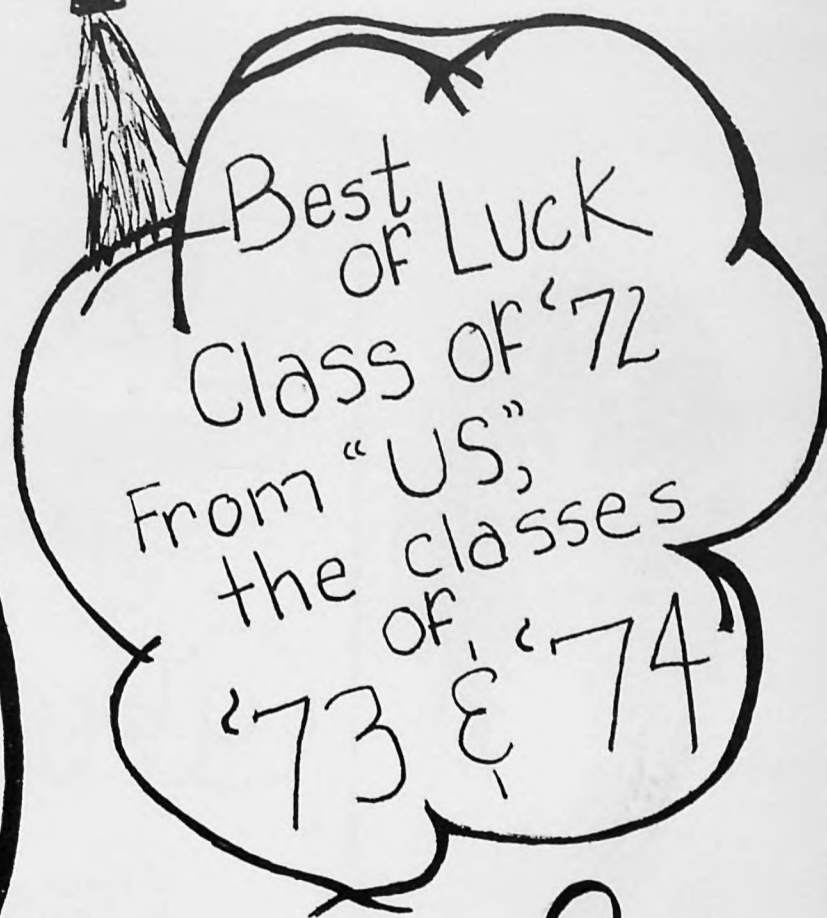 Best
of Luck
Class of '72
From "US",
the classes
of
'73 & '74